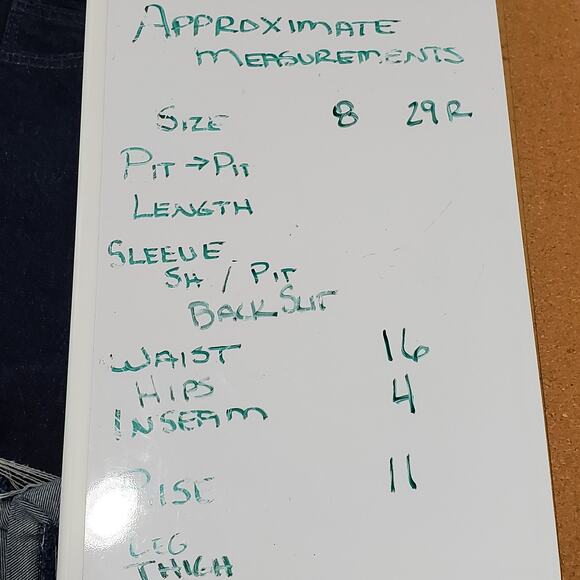 APPROXIMATE
MEASUREMENTS
SIZE 8 29R
PIT → PIT
LENGTH
SLEEVE
SH / PIT
BACK SLIT
WAIST 16
HIPS 4
INSEAM
RISE 11
LEG
THIGH